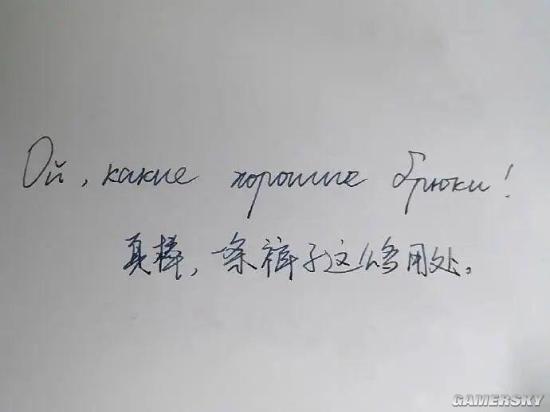 Ой, какие хорошие брюки!
真棒,条裤子这么多用处。
GAMERSKY